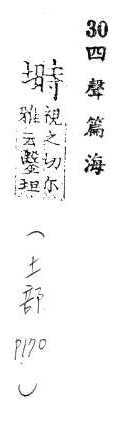 30四聲篇海
塒
視之切尔
雅云鑿坦
（土部 P170）